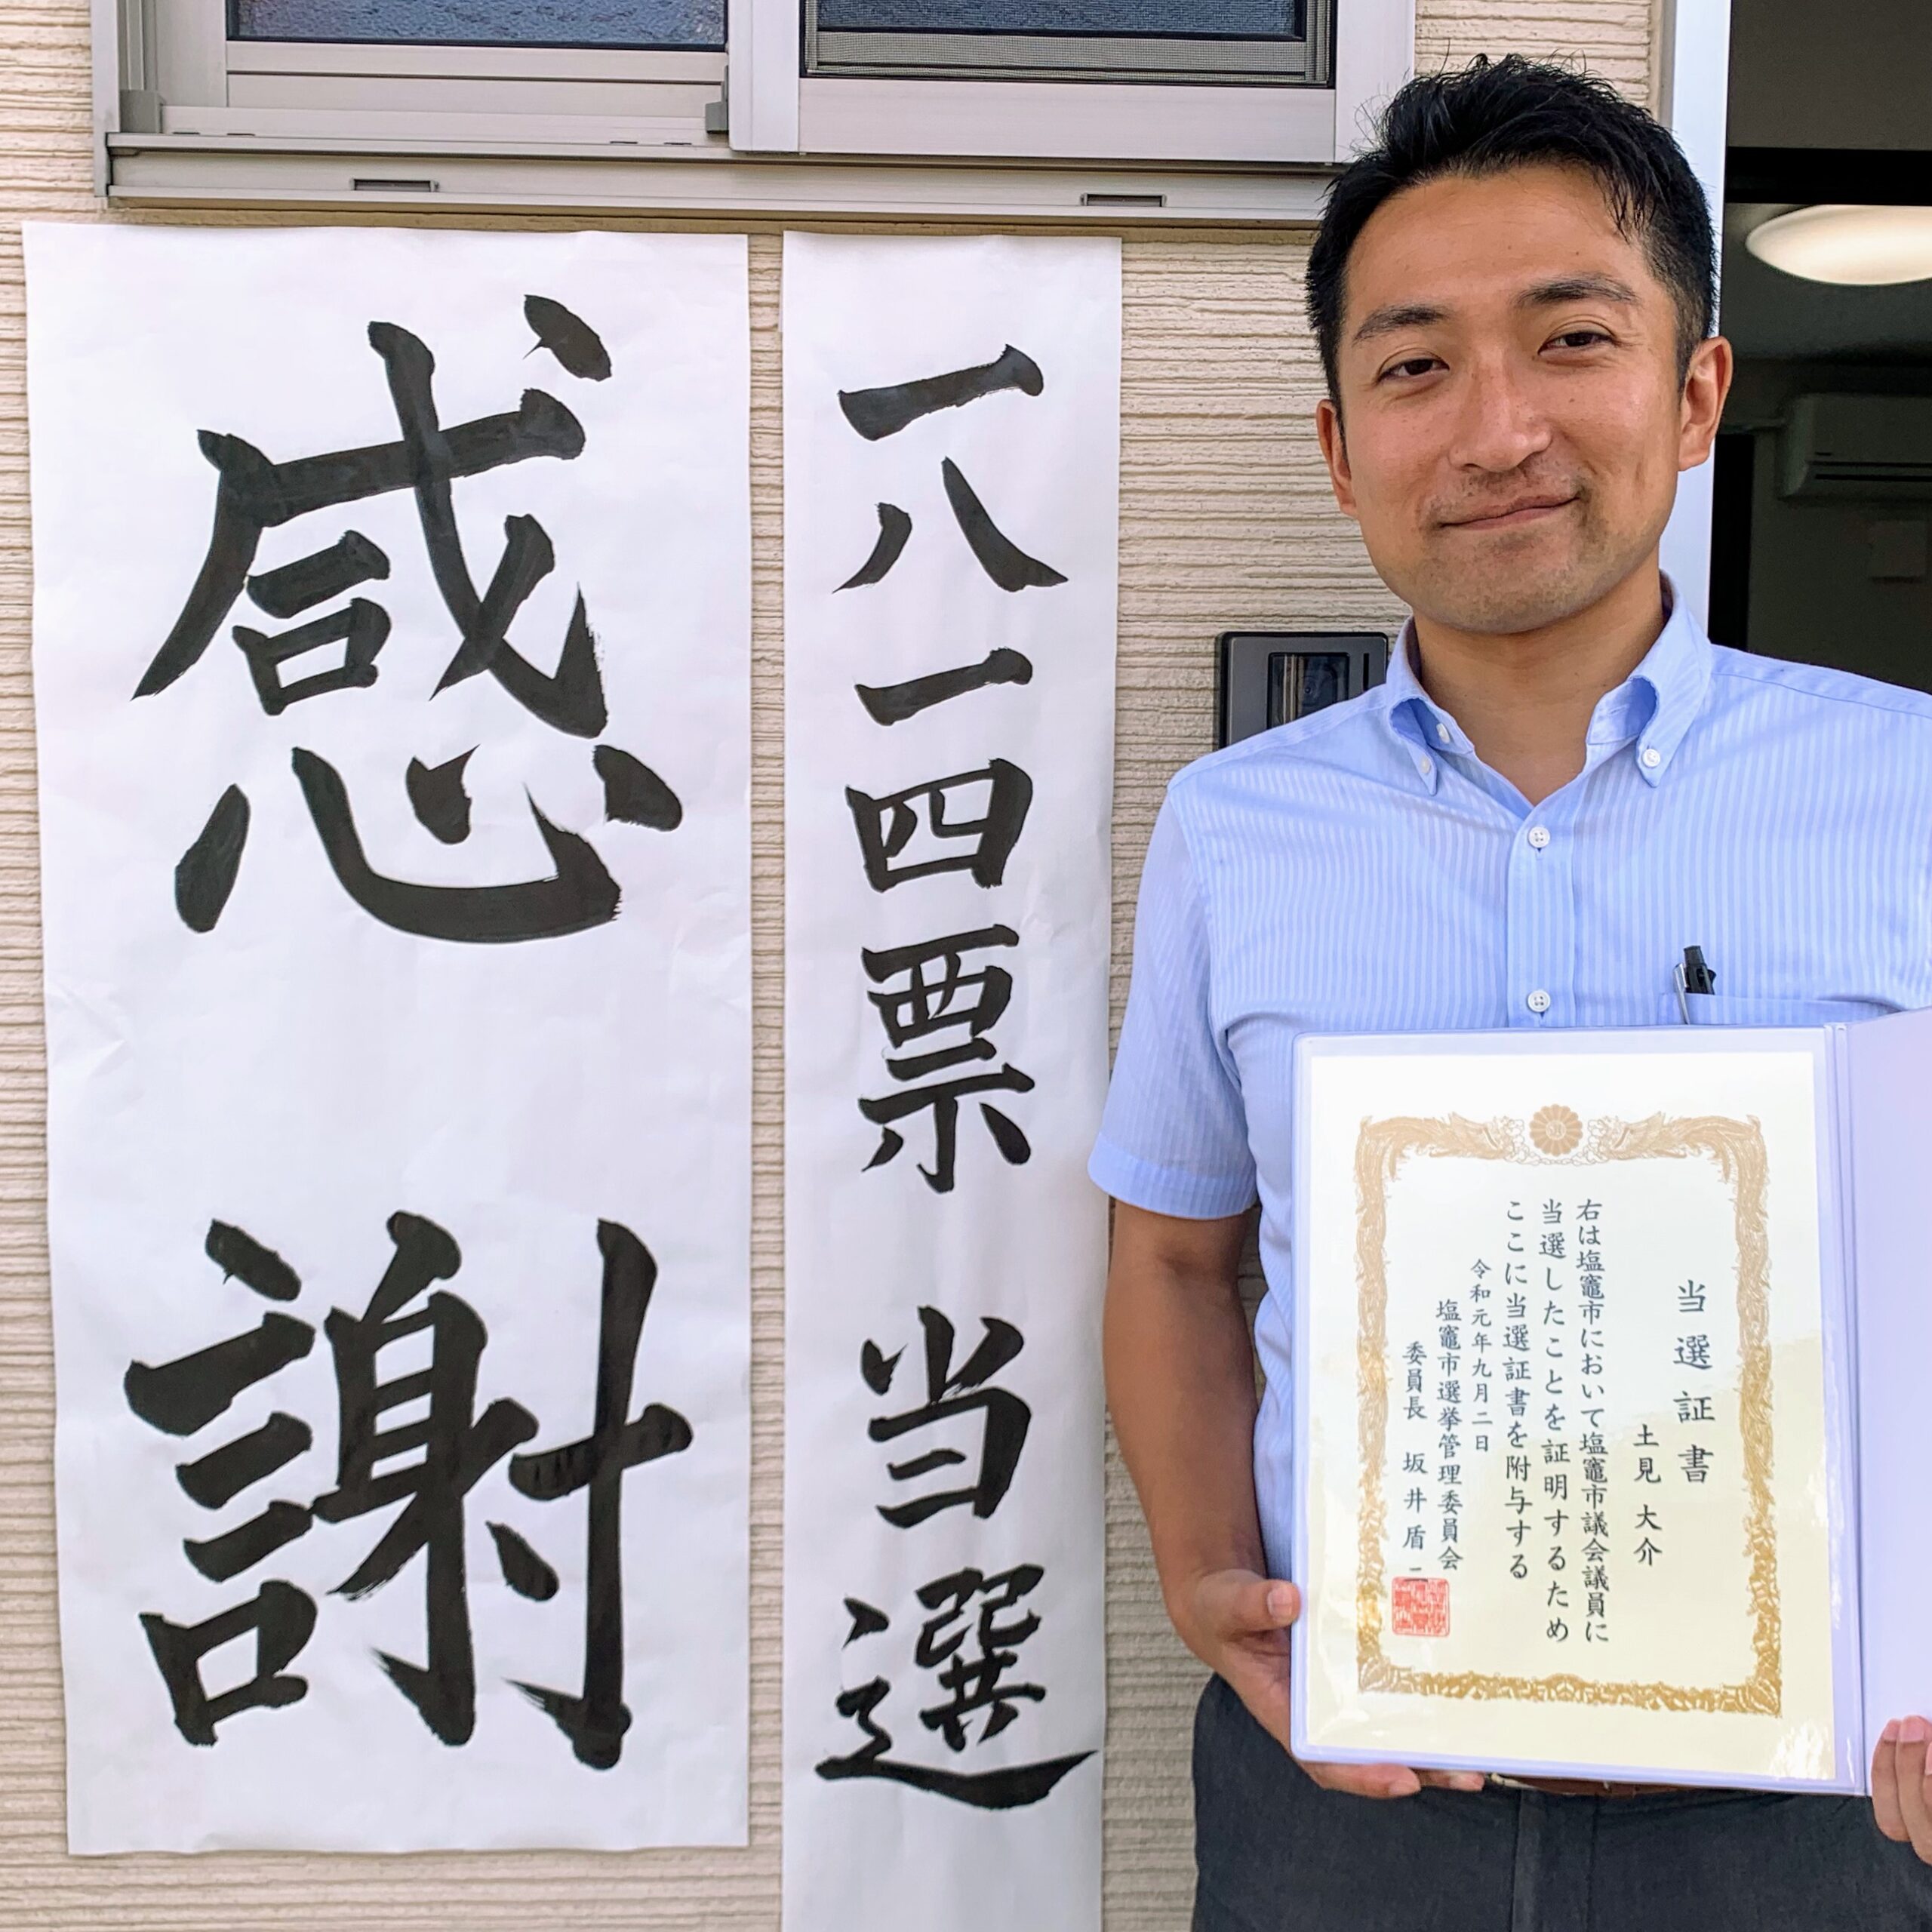 一八一四票 当選
感謝
当選証書
土見 大介
右は塩竈市において塩竈市議会議員に
当選したことを証明するため
ここに当選証書を附与する
令和元年九月二日
塩竈市選挙管理委員会
委員長 坂井盾二